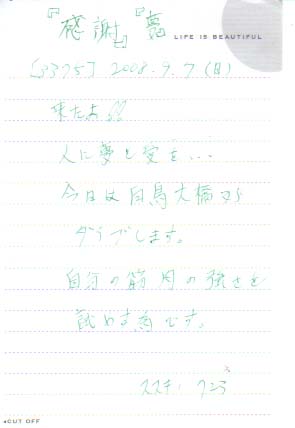 『感謝』『夢』
LIFE IS BEAUTIFUL
[3375] 2008.9.7(日)
来たよ!!
人に夢と愛を...
今日は白鳥大橋から
ダイブします。
自分の筋肉の強さを
試す為です。
ススキノ
◂CUT OFF